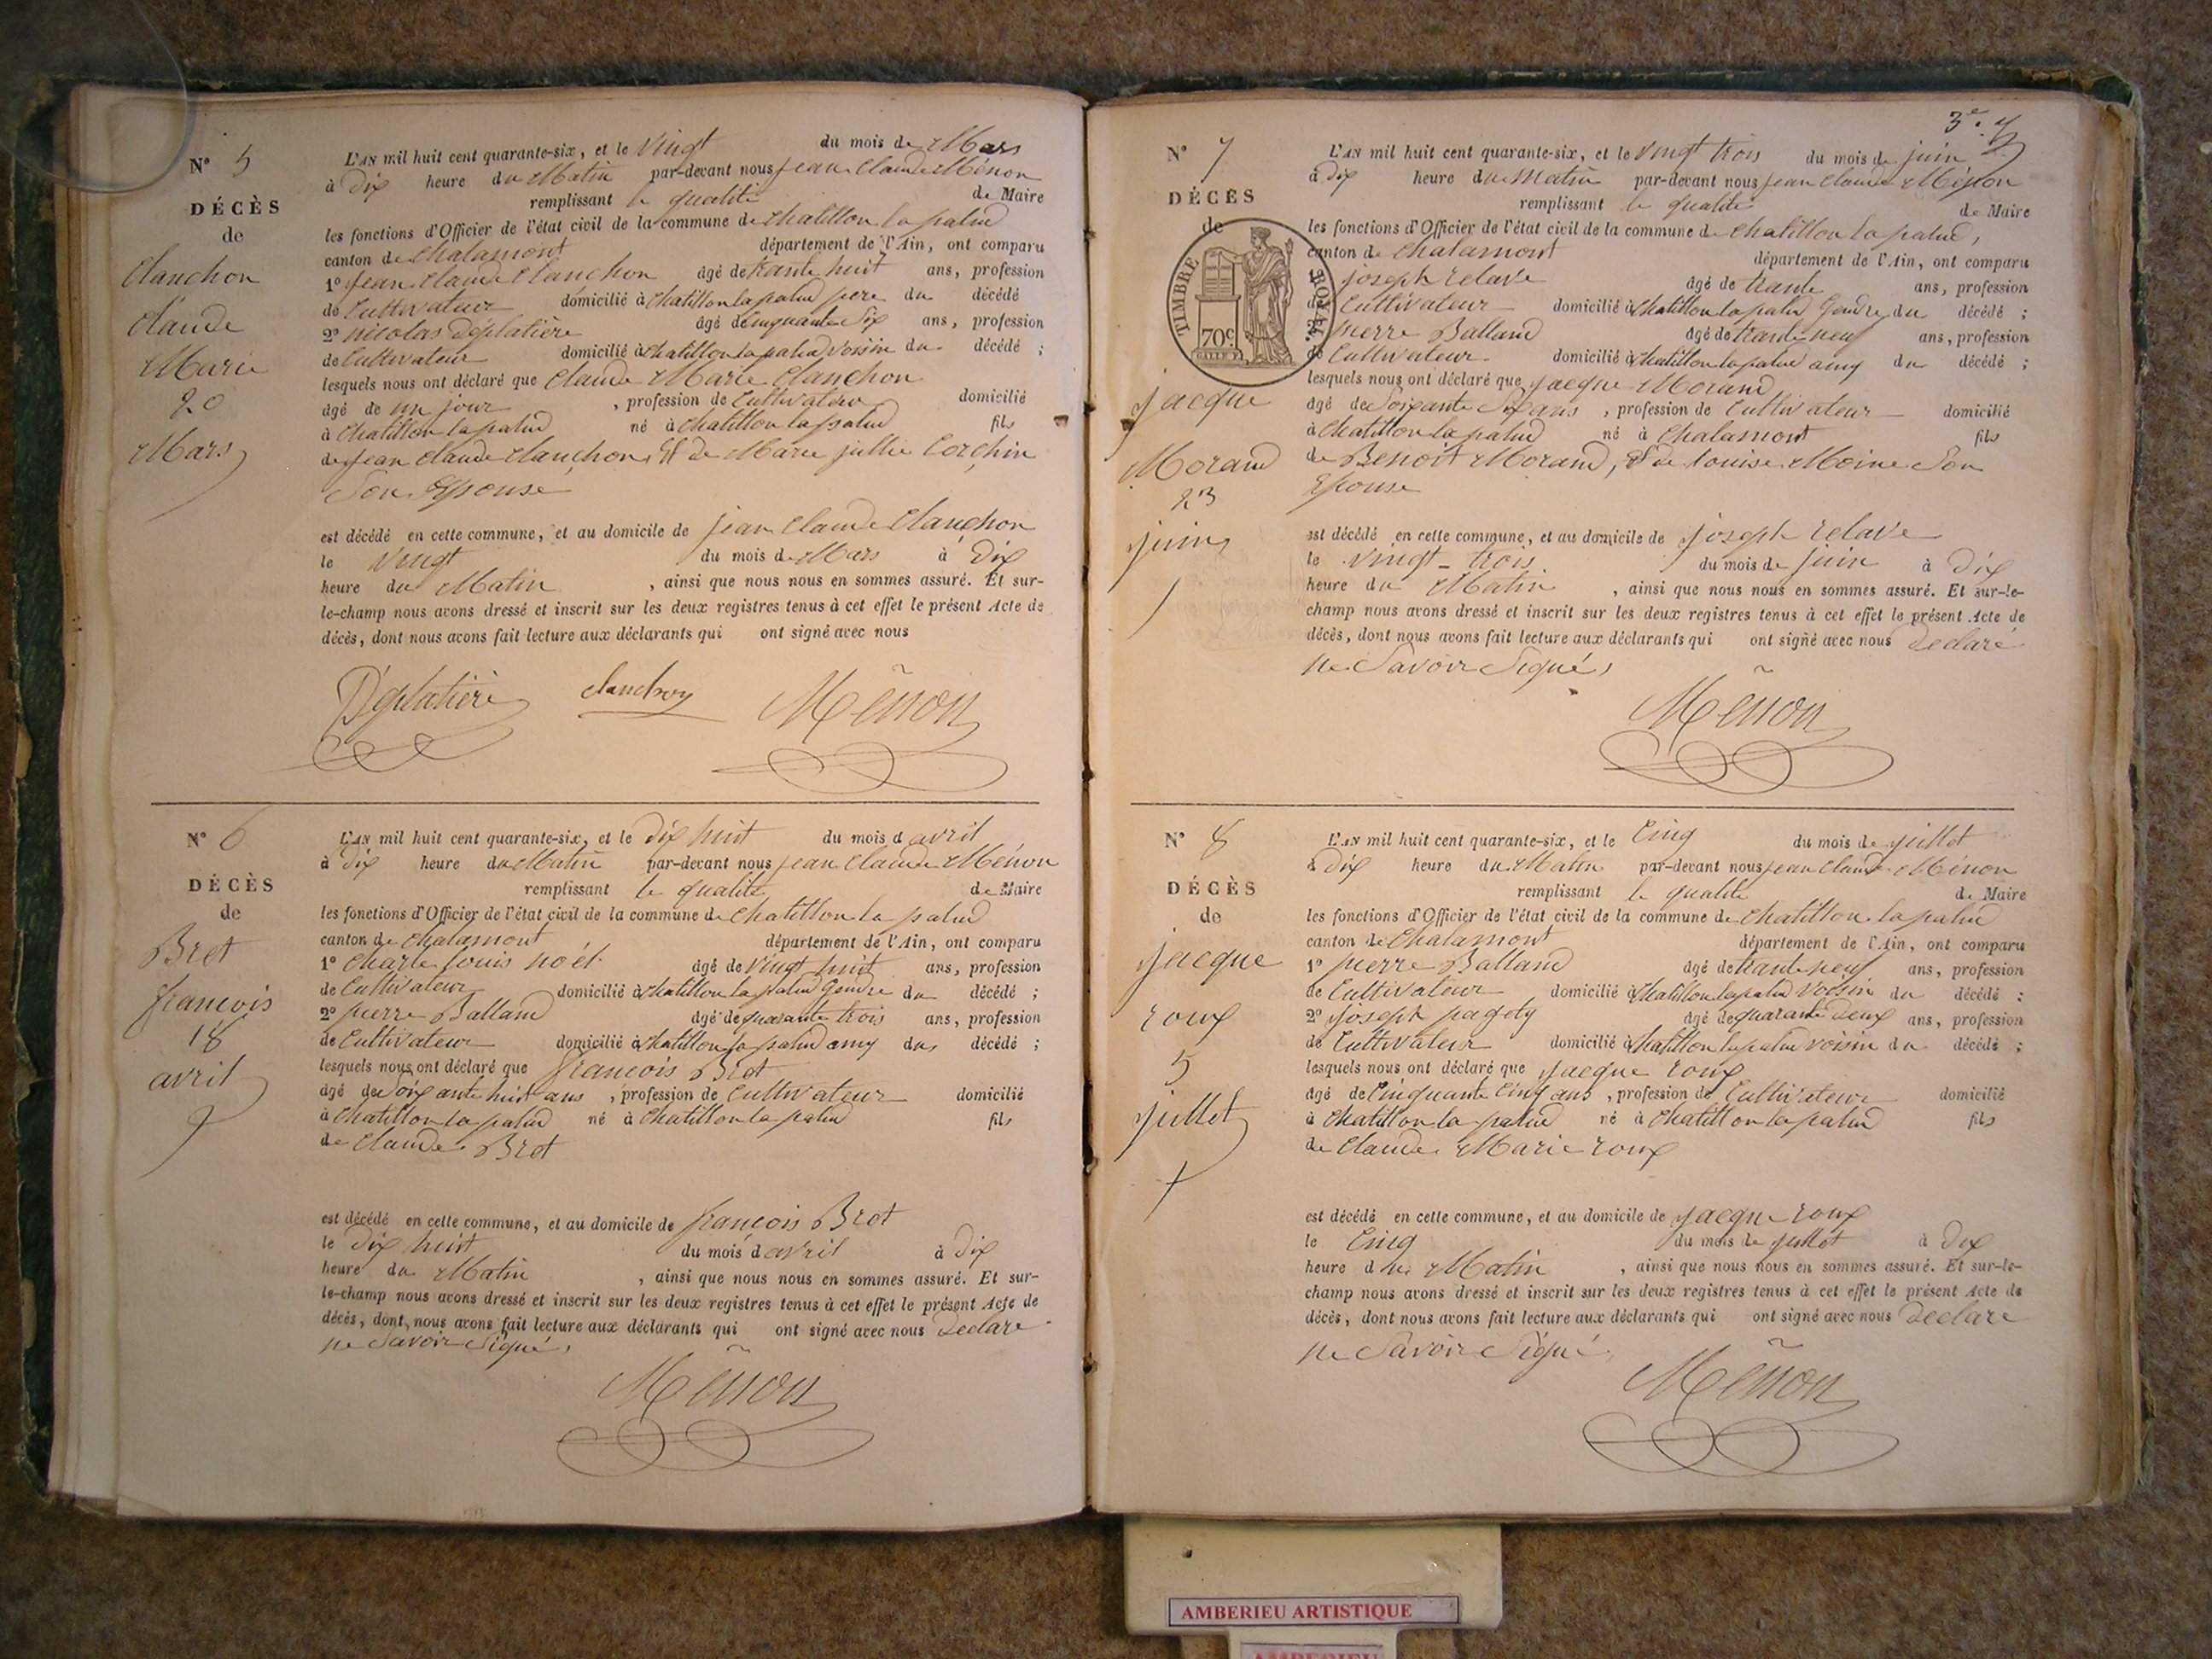 N° 5
DÉCÈS
de
Clanchon
Claude
Marie
20
Mars
L'AN mil huit cent quarante-six, et le Vingt du mois de Mars
à Dix heure du Matin par-devant nous jean Claude Ménon
remplissant la qualité de Maire
les fonctions d'Officier de l'état civil de la commune de Chatillon la palud
canton de Chalamont département de l'Ain, ont comparu
1° Jean Claude Clanchon âgé de trante huit ans, profession
de Cultivateur domicilié à Chatillon la palud pere du décédé
2° nicolas Deplatière âgé de Cinquante Six ans, profession
de Cultivateur domicilié à Chatillon la palud Voisin du décédé ;
lesquels nous ont déclaré que Claude Marie Clanchon
âgé de un jour , profession de Cultivateur domicilié
à Chatillon la palud né à Chatillon la palud fils
de Jean Claude Clanchon, Et de Marie jullie Corchin
Son Epouse
est décédé en cette commune, et au domicile de jean Claude Clanchon
le Vingt du mois de Mars à Dix
heure du Matin , ainsi que nous nous en sommes assuré. Et sur-
le-champ nous avons dressé et inscrit sur les deux registres tenus à cet effet le présent Acte de
décès, dont nous avons fait lecture aux déclarants qui ont signé avec nous
Déplatière clanchon Ménon
N° 6
DÉCÈS
de
Bret
françois
18
avril
L'AN mil huit cent quarante-six, et le Dix huit du mois d avril
à Dix heure du Matin par-devant nous jean Claude Ménon
remplissant la qualité de Maire
les fonctions d'Officier de l'état civil de la commune de Chatillon la palud
canton de Chalamont département de l'Ain, ont comparu
1° Charle Louis noël âgé de Vingt huit ans, profession
de Cultivateur domicilié à Chatillon la palud Gendre du décédé ;
2° pierre Balland âgé de quarante trois ans, profession
de Cultivateur domicilié à Chatillon la palud amy du décédé ;
lesquels nous ont déclaré que françois Bret
âgé de Soixante huit ans , profession de Cultivateur domicilié
à Chatillon la palud né à Chatillon la palud fils
de Claude Bret
est décédé en cette commune, et au domicile de françois Bret
le Dix huit du mois d avril à Dix
heure du Matin , ainsi que nous nous en sommes assuré. Et sur-
le-champ nous avons dressé et inscrit sur les deux registres tenus à cet effet le présent Acte de
décès, dont nous avons fait lecture aux déclarants qui ont signé avec nous Declare
ne Savoir Signé.
Ménon
3e.
N° 7
DÉCÈS
de
TIMBRE ROYAL
70c
jacque
Morand
23
juin
L'AN mil huit cent quarante-six, et le Vingt trois du mois de juin
à Dix heure du Matin par-devant nous jean Claude Ménon
remplissant la qualité de Maire
les fonctions d'Officier de l'état civil de la commune de Chatillon la palud,
canton de Chalamont département de l'Ain, ont comparu
joseph relave âgé de trante ans, profession
de Cultivateur domicilié à Chatillon la palud Gendre du décédé ;
2° pierre Balland âgé de trante neuf ans, profession
de Cultivateur domicilié à Chatillon la palud amy du décédé ;
lesquels nous ont déclaré que jacque Morand
âgé de Soixante Six ans , profession de Cultivateur domicilié
à Chatillon la palud né à Chalamont fils
de Benoit Morand, Et de Louise Moine Son
Epouse
est décédé en cette commune, et au domicile de joseph relave
le Vingt-trois du mois de juin à Dix
heure du Matin , ainsi que nous nous en sommes assuré. Et sur-le-
champ nous avons dressé et inscrit sur les deux registres tenus à cet effet le présent Acte de
décès, dont nous avons fait lecture aux déclarants qui ont signé avec nous Declaré
ne Savoir Signé,
Ménon
N° 8
DÉCÈS
de
jacque
roux
5
jullet
L'AN mil huit cent quarante-six, et le Cinq du mois de jullet
à Dix heure du Matin par-devant nous jean Claude Ménon
remplissant la qualité de Maire
les fonctions d'Officier de l'état civil de la commune de Chatillon la palud
canton de Chalamont département de l'Ain, ont comparu
1° pierre Balland âgé de trante neuf ans, profession
de Cultivateur domicilié à Chatillon la palud Voisin du décédé ;
2° joseph pagety âgé de quarante Deux ans, profession
de Cultivateur domicilié à Chatillon la palud voisin du décédé ;
lesquels nous ont déclaré que jacque roux
âgé de Cinquante Cinq ans , profession de Cultivateur domicilié
à Chatillon la palud né à Chatillon la palud fils
de Claude Marie roux
est décédé en cette commune, et au domicile de jacque roux
le Cinq du mois de jullet à Dix
heure du Matin , ainsi que nous nous en sommes assuré. Et sur-le-
champ nous avons dressé et inscrit sur les deux registres tenus à cet effet le présent Acte de
décès, dont nous avons fait lecture aux déclarants qui ont signé avec nous Declare
ne Savoir Signé
Ménon
AMBERIEU ARTISTIQUE
AMBERIEU